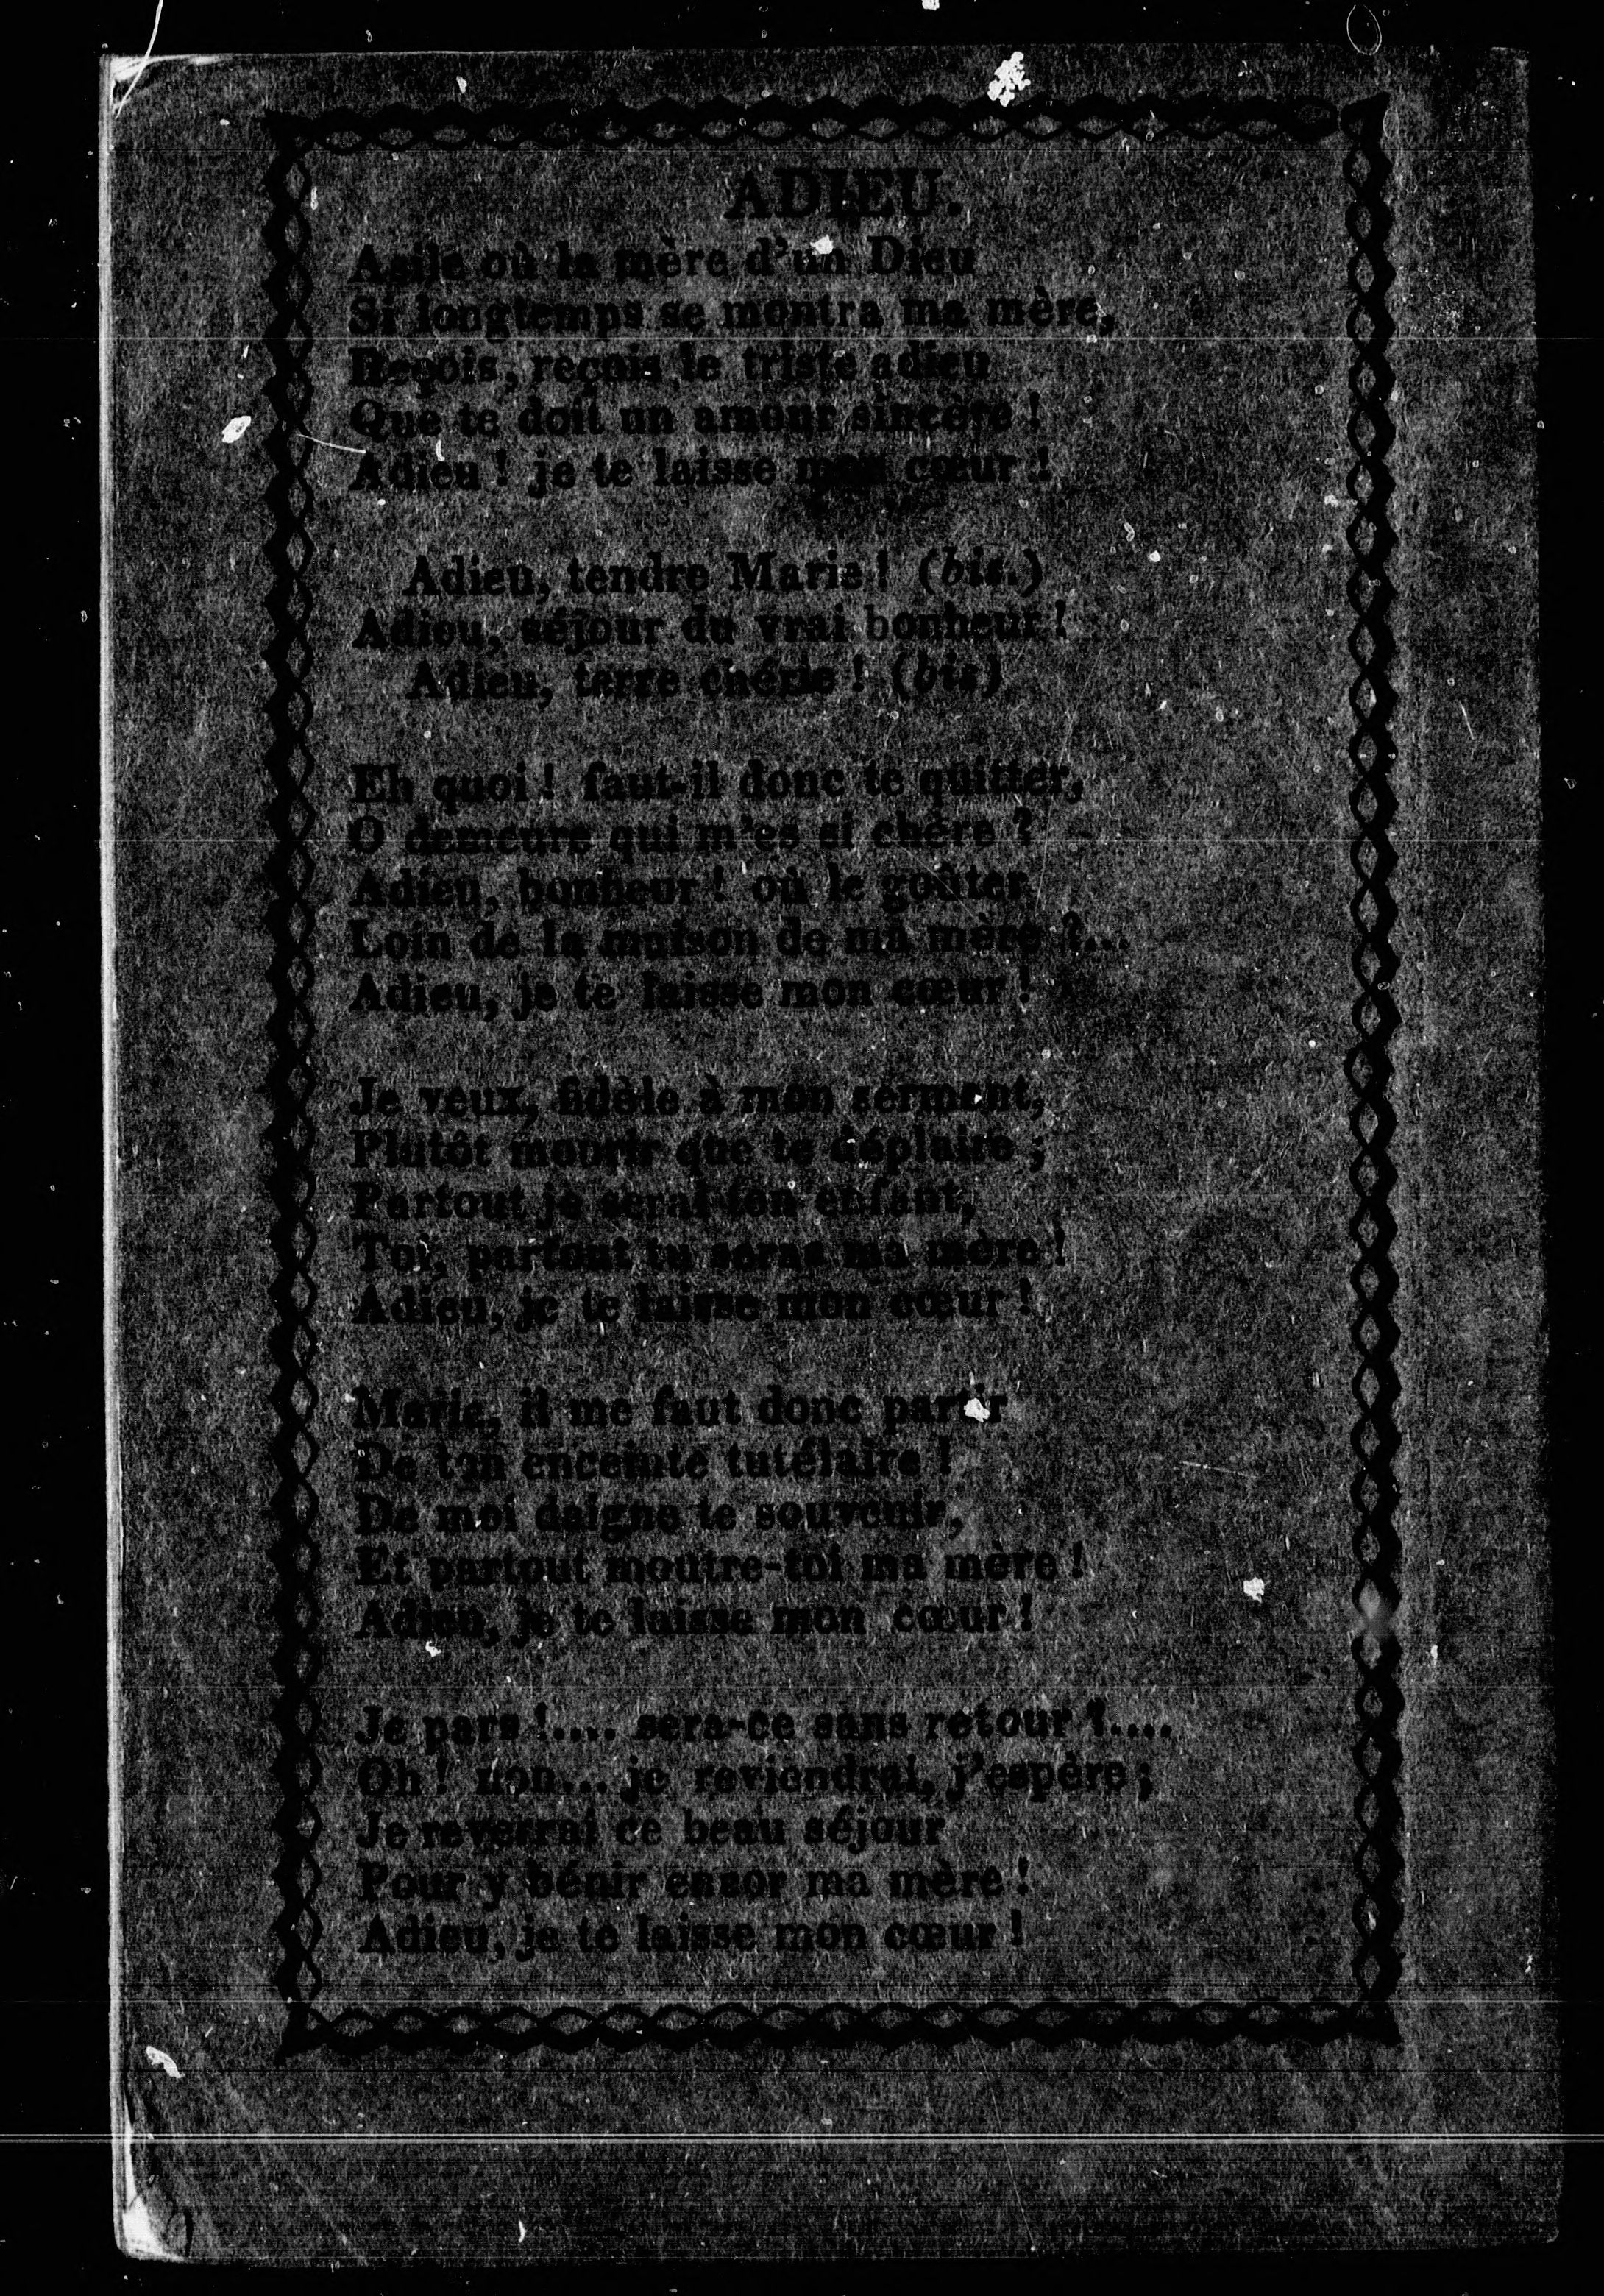 ADIEU.
Asile où la mère d'un Dieu
Si longtemps se montra ma mère,
Reçois, reçois le triste adieu
Que te doit un amour sincère !
Adieu ! je te laisse mon cœur !
Adieu, tendre Marie ! (bis.)
Adieu, séjour du vrai bonheur !
Adieu, terre chérie ! (bis)
Eh quoi ! faut-il donc te quitter,
O demeure qui m'es si chère ?
Adieu, bonheur ! où le goûter
Loin de la maison de ma mère ?...
Adieu, je te laisse mon cœur !
Je veux, fidèle à mon serment,
Plutôt mourir que te déplaire ;
Partout je serai ton enfant,
Toi, partout tu seras ma mère !
Adieu, je te laisse mon cœur !
Marie, il me faut donc partir
De ton enceinte tutélaire !
De moi daigne te souvenir,
Et partout montre-toi ma mère !
Adieu, je te laisse mon cœur !
Je pars !.... sera-ce sans retour ?....
Oh ! non... je reviendrai, j'espère ;
Je reverrai ce beau séjour
Pour y bénir encor ma mère !
Adieu, je te laisse mon cœur !